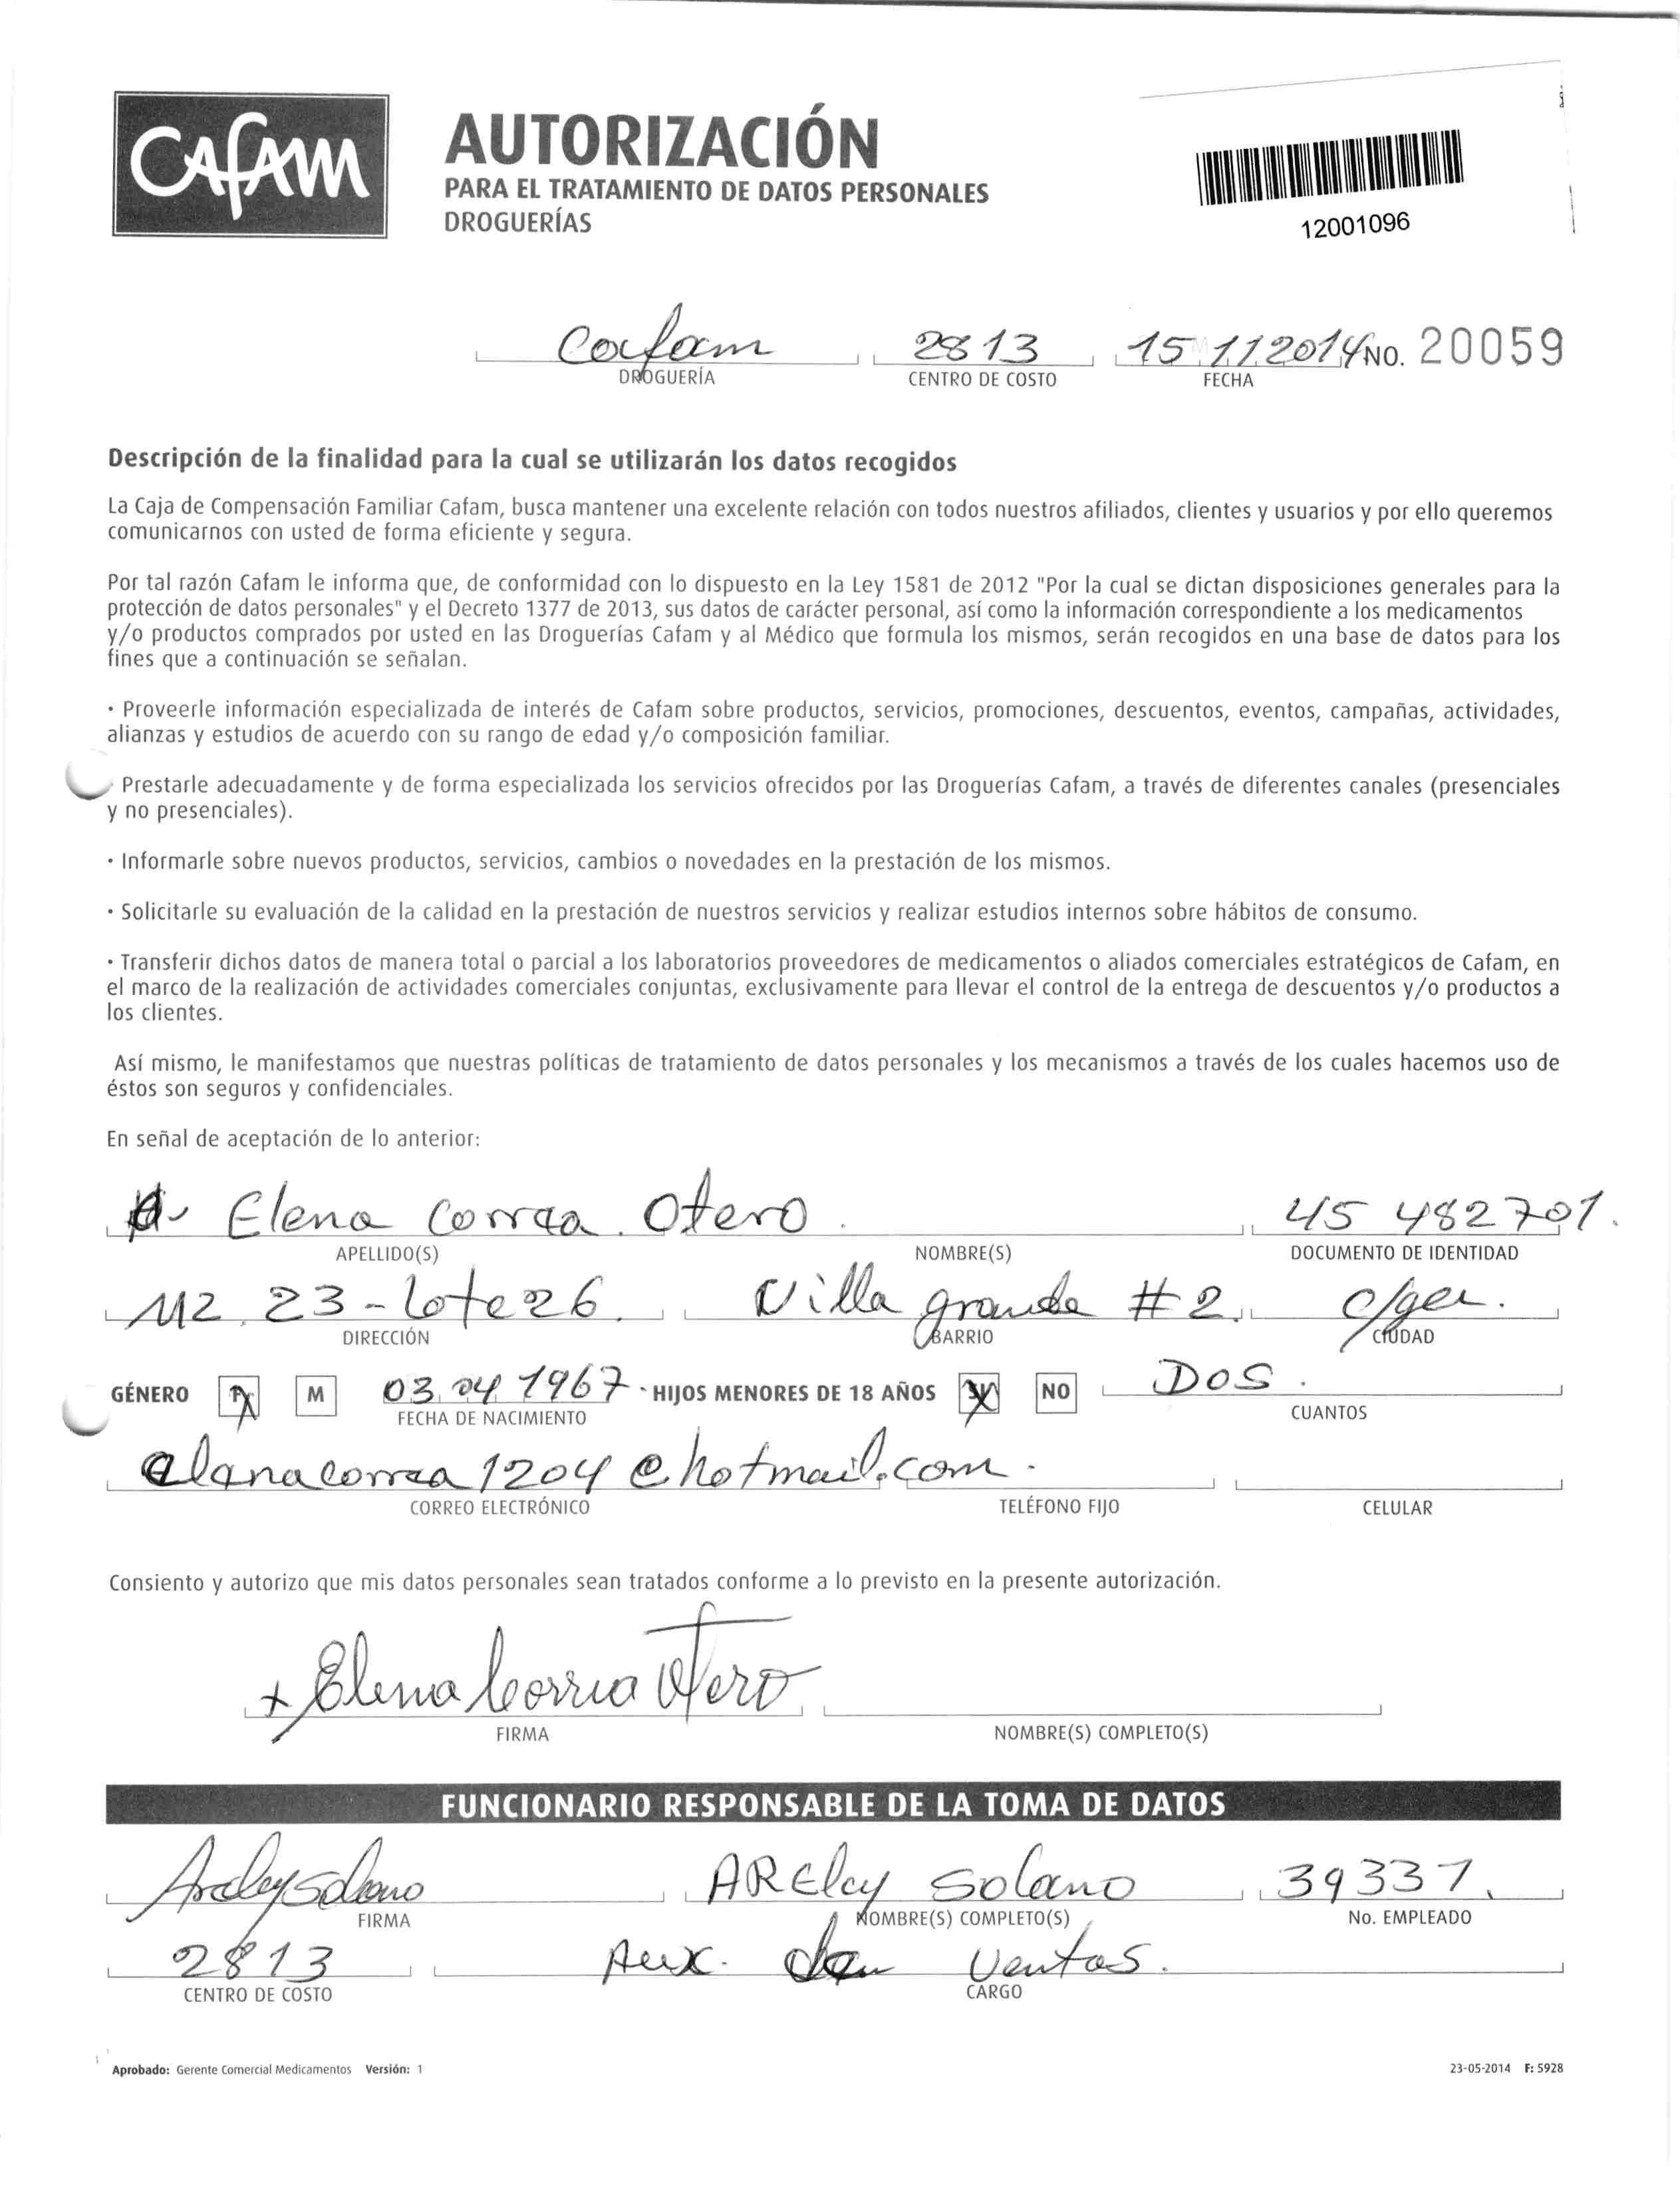 CAFAM
AUTORIZACIÓN
PARA EL TRATAMIENTO DE DATOS PERSONALES
DROGUERÍAS
12001096
Cafam 2813 15 11 2014 No. 20059
DROGUERÍA CENTRO DE COSTO FECHA
Descripción de la finalidad para la cual se utilizarán los datos recogidos
La Caja de Compensación Familiar Cafam, busca mantener una excelente relación con todos nuestros afiliados, clientes y usuarios y por ello queremos
comunicarnos con usted de forma eficiente y segura.
Por tal razón Cafam le informa que, de conformidad con lo dispuesto en la Ley 1581 de 2012 "Por la cual se dictan disposiciones generales para la
protección de datos personales" y el Decreto 1377 de 2013, sus datos de carácter personal, así como la información correspondiente a los medicamentos
y/o productos comprados por usted en las Droguerías Cafam y al Médico que formula los mismos, serán recogidos en una base de datos para los
fines que a continuación se señalan.
· Proveerle información especializada de interés de Cafam sobre productos, servicios, promociones, descuentos, eventos, campañas, actividades,
alianzas y estudios de acuerdo con su rango de edad y/o composición familiar.
Prestarle adecuadamente y de forma especializada los servicios ofrecidos por las Droguerías Cafam, a través de diferentes canales (presenciales
y no presenciales).
· Informarle sobre nuevos productos, servicios, cambios o novedades en la prestación de los mismos.
· Solicitarle su evaluación de la calidad en la prestación de nuestros servicios y realizar estudios internos sobre hábitos de consumo.
· Transferir dichos datos de manera total o parcial a los laboratorios proveedores de medicamentos o aliados comerciales estratégicos de Cafam, en
el marco de la realización de actividades comerciales conjuntas, exclusivamente para llevar el control de la entrega de descuentos y/o productos a
los clientes.
Así mismo, le manifestamos que nuestras políticas de tratamiento de datos personales y los mecanismos a través de los cuales hacemos uso de
éstos son seguros y confidenciales.
En señal de aceptación de lo anterior:
Elena Correa Otero. 45 482701.
APELLIDO(S) NOMBRE(S) DOCUMENTO DE IDENTIDAD
MZ. 23 - Lote 26. Villa grande # 2. c/gen.
DIRECCIÓN BARRIO CIUDAD
GÉNERO M 03 04 1967 HIJOS MENORES DE 18 AÑOS SI NO DOS.
FECHA DE NACIMIENTO CUANTOS
elenacorrea1204@hotmail.com.
CORREO ELECTRÓNICO TELÉFONO FIJO CELULAR
Consiento y autorizo que mis datos personales sean tratados conforme a lo previsto en la presente autorización.
x Elena Correa Otero
FIRMA NOMBRE(S) COMPLETO(S)
FUNCIONARIO RESPONSABLE DE LA TOMA DE DATOS
Areley Solano ARELEY Solano 39337.
FIRMA NOMBRE(S) COMPLETO(S) No. EMPLEADO
2813 Aux. de Ventas.
CENTRO DE COSTO CARGO
Aprobado: Gerente Comercial Medicamentos Versión: 1 23-05-2014 F: 5928